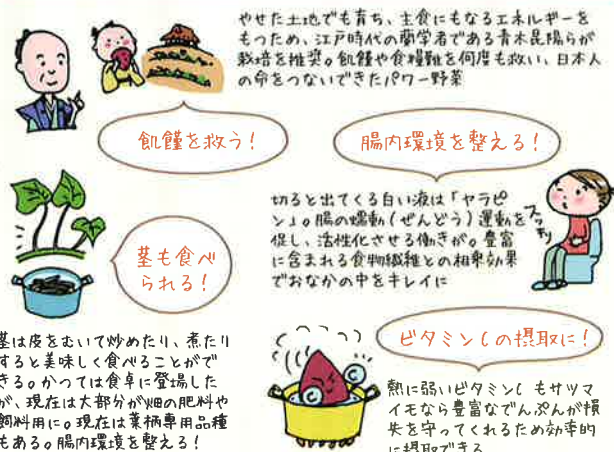 やせた土地でも育ち、主食にもなるエネルギーを
もつため、江戸時代の蘭学者である青木昆陽らが
栽培を推奨。飢饉や食糧難を何度も救い、日本人
の命をつないできたパワー野菜
飢饉を救う!
腸内環境を整える!
切ると出てくる白い液は「ヤラピ
ン」。腸の蠕動(ぜんどう)運動を
促し、活性化させる働きが。豊富
に含まれる食物繊維との相乗効果
でおなかの中をキレイに
スッキリ
茎も食べ
られる!
茎は皮をむいて炒めたり、煮たり
すると美味しく食べることがで
きる。かつては食卓に登場した
が、現在は大部分が畑の肥料や
飼料用に。現在は葉柄専用品種
もある。腸内環境を整える!
ビタミンCの摂取に!
C
C
熱に弱いビタミンCもサツマ
イモなら豊富なでんぷんが損
失を守ってくれるため効率的
に摂取できる